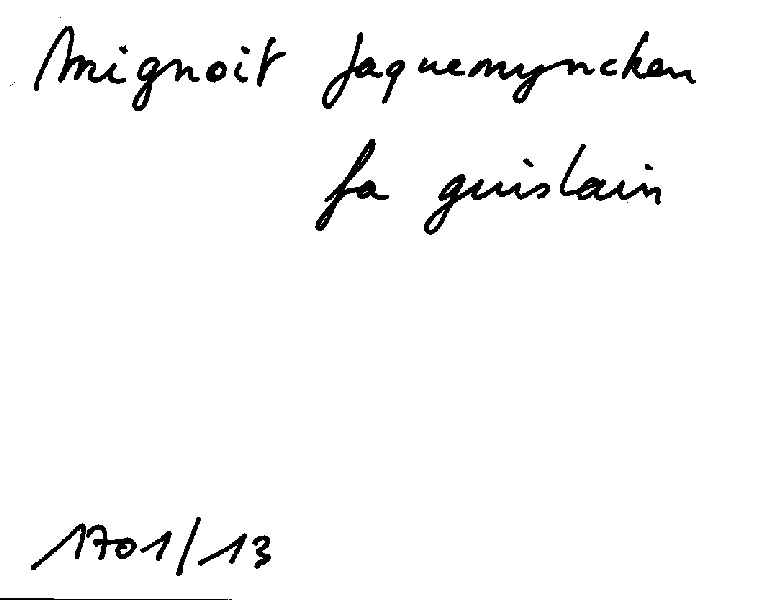 Mignoit Jaquemyncken
fa guislain
1701/13